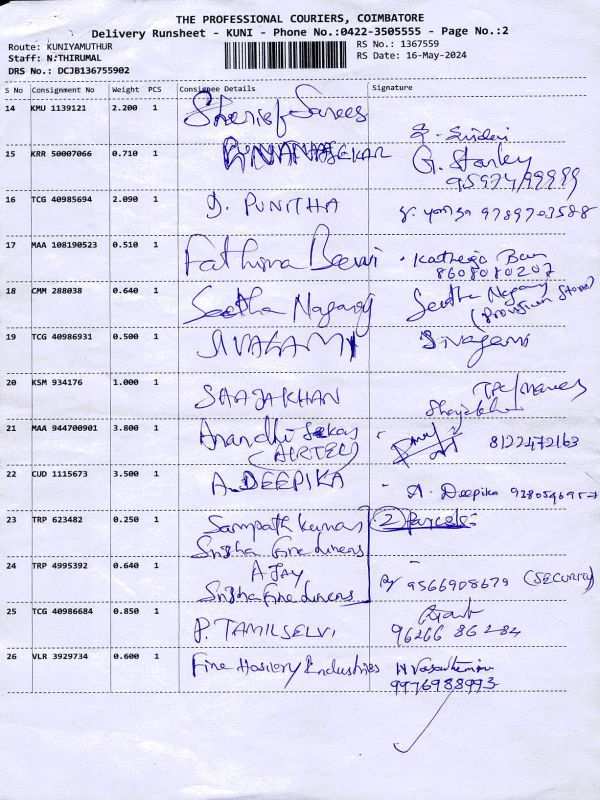 THE PROFESSIONAL COURIERS, COIMBATORE
Delivery Runsheet - KUNI - Phone No.:0422-3505555 - Page No.:2
Route: KUNIYAMUTHUR
RS No.: 1367559
Staff: N.THIRUMAL
RS Date: 16-May-2024
DRS No.: DCJB136755902
S No Consignment No Weight PCS Consignee Details Signature
14 KMU 1139121 2.200 1 Sarees
15 KRR 50007066 0.710 1 G. Stanley
16 TCG 40985694 2.090 1 D. PUNITHA 9789703588
17 MAA 108190523 0.510 1 Fathima Beevi
8608080207
18 CMM 288038 0.640 1 Seetha Nagaraj Seetha Nagaraj
(Provision Store)
19 TCG 40986931 0.500 1 SIVAGAMI Sivagami
20 KSM 934176 1.000 1 SAAJAKHAN
21 MAA 944700901 3.800 1 Anandhi
(AIRTEL) 8122472163
22 CUD 1115673 3.500 1 A. DEEPIKA A. Deepika
23 TRP 623482 0.250 1 Sampath Kumar 2 Parcels
Fine Linens
24 TRP 4995392 0.640 1 AJAY
Fine Linens 9566908679 (SECURITY)
25 TCG 40986684 0.850 1 P. TAMILSELVI
96266 86284
26 VLR 3929734 0.600 1 Fine Hosiery Industries
9976988993